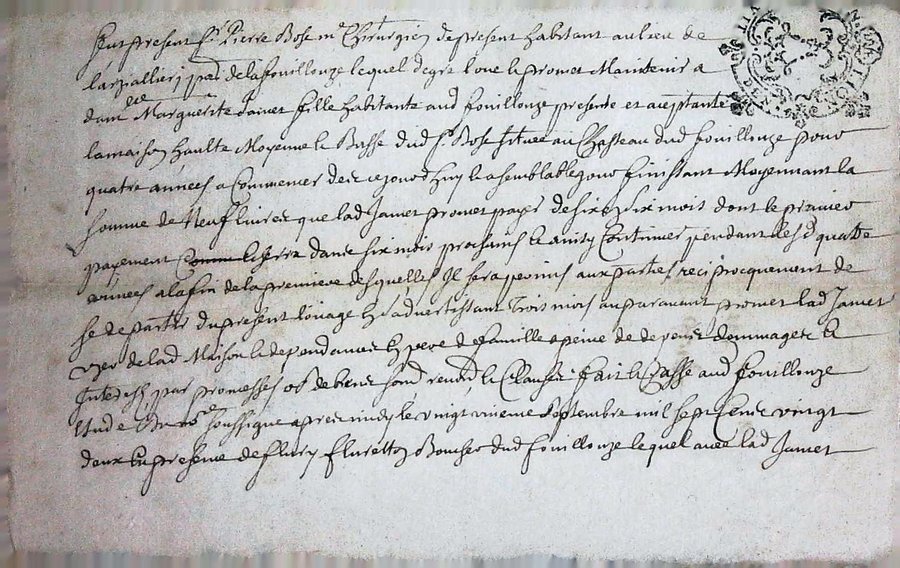 fut present Sr Pierre Bose me Chirurgien de present habitant au lieu de
larpallieu par de la fouillouze lequel de gré loue et promet Maintenir a
dam elle Marguerite Jamet fille habitante aud fouillouze presente et acceptante
la maison haulte Moyenne et Basse dud Sr Bose scituée au Chasteau dud fouillouze pour
quatre années a Commencer de ce jourdhuy et a semblable jour finissant Moyennant la
somme de Neuf livres que lad Jamet promet payer de six en Six mois dont le premier
payement sera dans six mois prochains et ainsy Continuer pendant lesd quatre
années a la fin de la premiere desquelles Il sera permis aux parties reciprocquement de
se departir du present louage en s'advertissant trois mois auparavant promet lad Jamet
user de lad Maison et dependances en pere de famille a peine de de venir dommages et
Interests par promesses ob de biens soub renon et Clauses fait et Passé aud fouillouze
Etude du nore soussigné apres midy le vingt unieme Septembre mil sept Cens vingt
deux En presence de fleury fleuretton Boucher dud fouillouze lequel avec lad Jamet